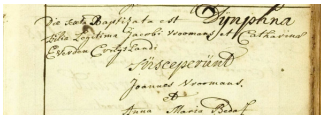 Die sexta Baptizata est Dÿmphna
filia Legitima Jacobi Vroomans et Catharina
E Verden
Susceperunt
Joannes Vroomans.
et
Anna Maria Bedaf